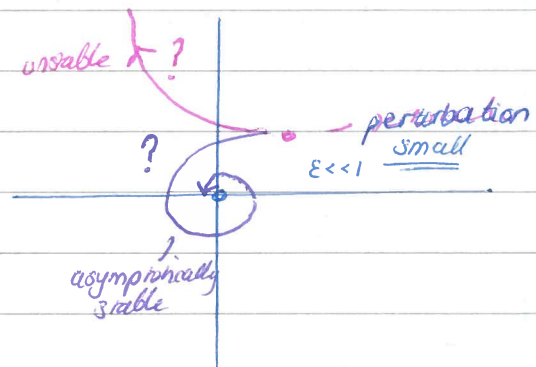 unstable ?
perturbation
small
ε<<1
?
asymptotically
stable